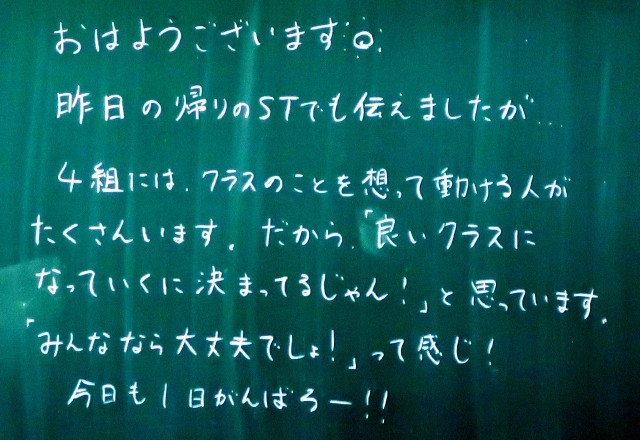 おはようございます☺
昨日の帰りのSTでも伝えましたが…
4組には、クラスのことを想って動ける人が
たくさんいます。だから、「良いクラスに
なっていくに決まってるじゃん！」と思っています。
「みんななら大丈夫でしょ！」って感じ！
今日も1日がんばろー!!